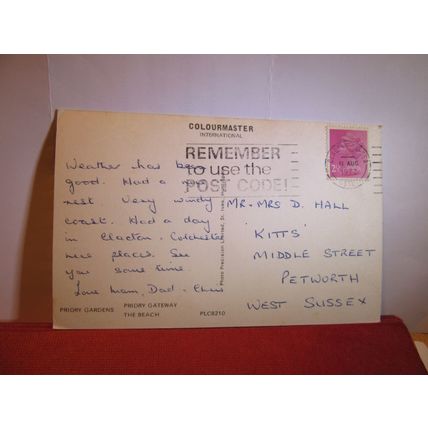 COLOURMASTER
INTERNATIONAL
REMEMBER
to use the
POST CODE!
11 AUG
Weather has been
good. Had a nice
rest. Very windy
coast. Had a day
in Clacton. Colchester
nice places. See
you some time.
Love Mam, Dad - Chris
MR. MRS D. HALL
'KITTS'
MIDDLE STREET
PETWORTH
WEST SUSSEX
Photo Precision Limited, St. Ives,
PRIORY GARDENS PRIORY GATEWAY
THE BEACH PLC8210